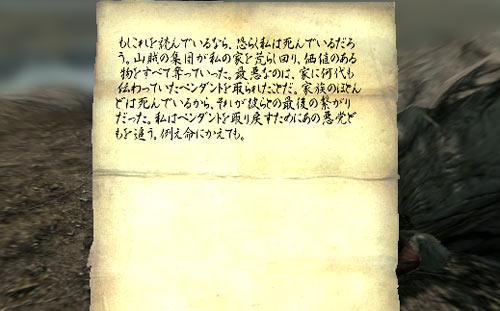 もしこれを読んでいるなら、恐らく私は死んでいるだろ
う。山賊の集団が私の家を荒らし回り、価値のある
物をすべて奪っていった。最悪なのは、家に何代も
伝わっていたペンダントを取られたことだ。家族のほとん
どは死んでいるから、それが彼らとの最後の繋がり
だった。私はペンダントを取り戻すためにあの悪党ど
もを追う。例え命にかえても。